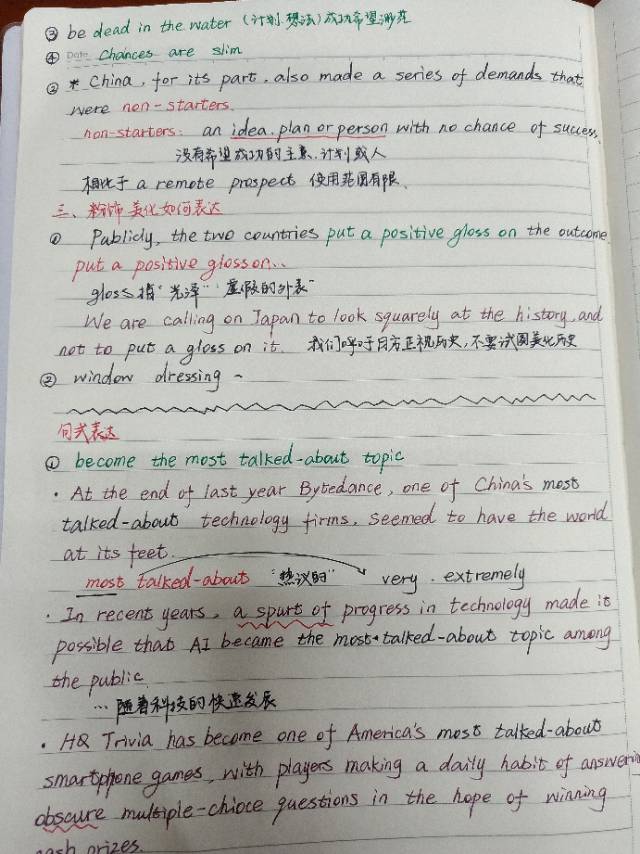 ③ be dead in the water (计划.想法)成功希望渺茫
④ Date. Chances are slim
② * China, for its part, also made a series of demands that
were non-starters.
non-starters: an idea.plan or person with no chance of success.
没有希望成功的主意.计划或人
相比于 a remote prospect 使用范围有限.
三、粉饰美化如何表达
① Publicly, the two countries put a positive gloss on the outcome
put a positive gloss on..
gloss 指"光泽" "虚假的外表"
We are calling on Japan to look squarely at the history, and
not to put a gloss on it. 我们呼吁日方正视历史,不要试图美化历史
② window dressing ~
句式表达
① become the most talked-about topic
· At the end of last year Bytedance, one of China's most
talked-about technology firms, seemed to have the world
at its feet.
most talked-about "热议的" very. extremely
· In recent years, a spurt of progress in technology made it
possible that AI became the most talked-about topic among
the public.
... 随着科技的快速发展
· HQ Trivia has become one of America's most talked-about
smartphone games, with players making a daily habit of answering
obscure multiple-chioce questions in the hope of winning
cash prizes.